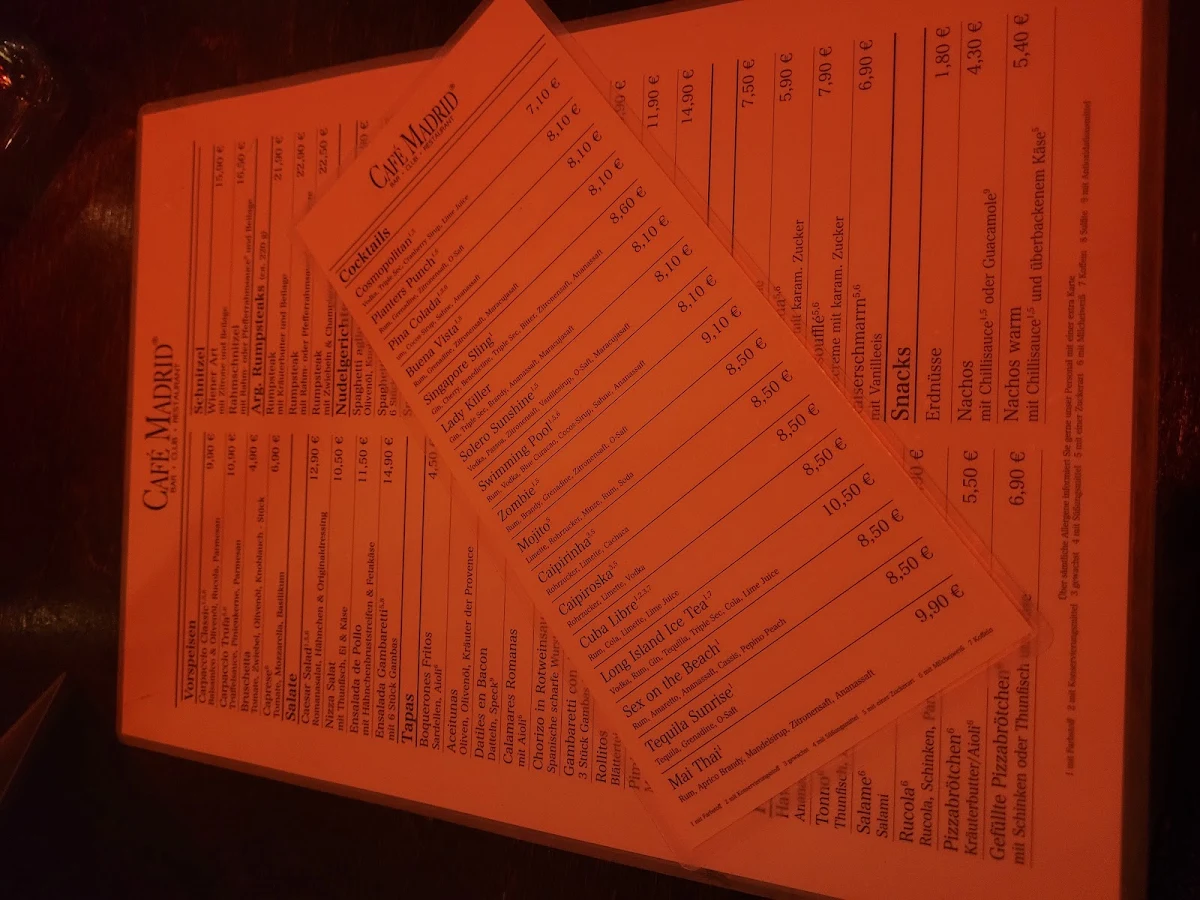 CAFÉ MADRID®
BAR • CLUB • RESTAURANT
Cocktails
Cosmopolitan 7,10 €
Vodka, Triple Sec, Cranberry Sirup, Lime Juice
Planters Punch 8,10 €
Rum, Grenadine, Zitronensaft, O-Saft
Pina Colada 8,10 €
Rum, Cocos-Sirup, Sahne, Ananassaft
Buena Vista 8,10 €
Rum, Grenadine, Zitronensaft, Maracujasaft
Singapore Sling¹ 8,60 €
Gin, Cherry, Benedictine, Triple Sec, Bitter, Zitronensaft, Ananassaft
Lady Killer 8,10 €
Gin, Triple Sec, Brandy, Ananassaft, Maracujasaft
Solero Sunshine¹,⁵ 8,10 €
Vodka, Passoa, Zitronensaft, Vanillesirup, O-Saft, Maracujasaft
Swimming Pool 8,10 €
Rum, Vodka, Blue Curacao, Cocos-Sirup, Sahne, Ananassaft
Zombie¹,⁵ 9,10 €
Rum, Brandy, Grenadine, Zitronensaft, O-Saft
Mojito⁵ 8,50 €
Limette, Rohrzucker, Minze, Rum, Soda
Caipirinha 8,50 €
Rohrzucker, Limette, Cachaca
Caipiroska 8,50 €
Rohrzucker, Limette, Vodka
Cuba Libre 8,50 €
Rum, Cola, Limette, Lime Juice
Long Island Ice Tea¹,⁷ 10,50 €
Vodka, Rum, Gin, Tequila, Triple Sec, Cola, Lime Juice
Sex on the Beach¹ 8,50 €
Rum, Amaretto, Ananassaft, Cassis, Pepino Peach
Tequila Sunrise¹ 8,50 €
Tequila, Grenadine, O-Saft
Mai Thai¹ 9,90 €
Rum, Aprico Brandy, Mandelsirup, Zitronensaft, Ananassaft
1 mit Farbstoff 2 mit Konservierungsstoff 3 gewachst 4 mit Süßungsmittel 5 mit einer Zuckerart 6 mit Milcheiweiß 7 Koffein
CAFÉ MADRID®
BAR • CLUB • RESTAURANT
Vorspeisen
Carpaccio Classic 9,90 €
Balsamico & Olivenöl, Rucola, Parmesan
Carpaccio Trufa 10,90 €
Trüffelsauce, Pinienkerne, Parmesan
Bruschetta 4,90 €
Tomate, Zwiebel, Olivenöl, Knoblauch - Stück
Caprese⁶ 6,90 €
Tomate, Mozzarella, Basilikum
Salate
Caesar Salad 12,90 €
Romanasalat, Hähnchen & Originaldressing
Nizza Salat 10,50 €
mit Thunfisch, Ei & Käse
Ensalada de Pollo 11,50 €
mit Hähnchenbruststreifen & Fetakäse
Ensalada Gambaretti 14,90 €
mit 6 Stück Gambas
Tapas
Boquerones Fritos 4,50
Sardellen, Aioli
Aceitunas
Oliven, Olivenöl, Kräuter der Provence
Datiles en Bacon
Datteln, Speck
Calamares Romanas
mit Aioli
Chorizo in Rotweins
Spanische scharfe Wurs
Gambaretti con
3 Stück Gambas
Rollitos
Blätterte
Tonno
Thunfisch,
Salame⁶
Salami
Rucola⁶
Rucola, Schinken, Par
Pizzabrötchen⁶ 5,50 €
Kräuterbutter/Aioli⁶
Gefüllte Pizzabrötchen 6,90 €
mit Schinken oder Thunfisch
Schnitzel
Wiener Art 15,90 €
mit Zitrone und Beilage
Rahmschnitzel 16,50 €
mit Rahm- oder Pfefferrahmsauce und Beilage
Arg. Rumpsteaks (ca. 220 g)
Rumpsteak 21,90 €
mit Kräuterbutter und Beilage
Rumpsteak 22,90 €
mit Rahm- oder Pfefferrahmsauce
Rumpsteak 22,50 €
mit Zwiebeln & Champig
Nudelgericht
Spaghetti
Olivenöl,
11,90 €
14,90 €
7,50 €
mit karam. Zucker 5,90 €
oufflé⁵,⁶ 7,90 €
creme mit karam. Zucker
aiserschmarrn⁵,⁶ 6,90 €
mit Vanilleeis
Snacks
Erdnüsse 1,80 €
Nachos 4,30 €
mit Chillisauce¹,⁵ oder Guacamole⁹
Nachos warm 5,40 €
mit Chillisauce¹,⁵ und überbackenem Käse⁵
Über sämtliche Allergene informiert Sie gerne unser Personal mit einer extra Karte
1 mit Farbstoff 2 mit Konservierungsmittel 3 gewachst 4 mit Süßungsmittel 5 mit einer Zuckerart 6 mit Milcheiweiß 7 Koffein 8 Sulfite 9 mit Antioxidationsmittel